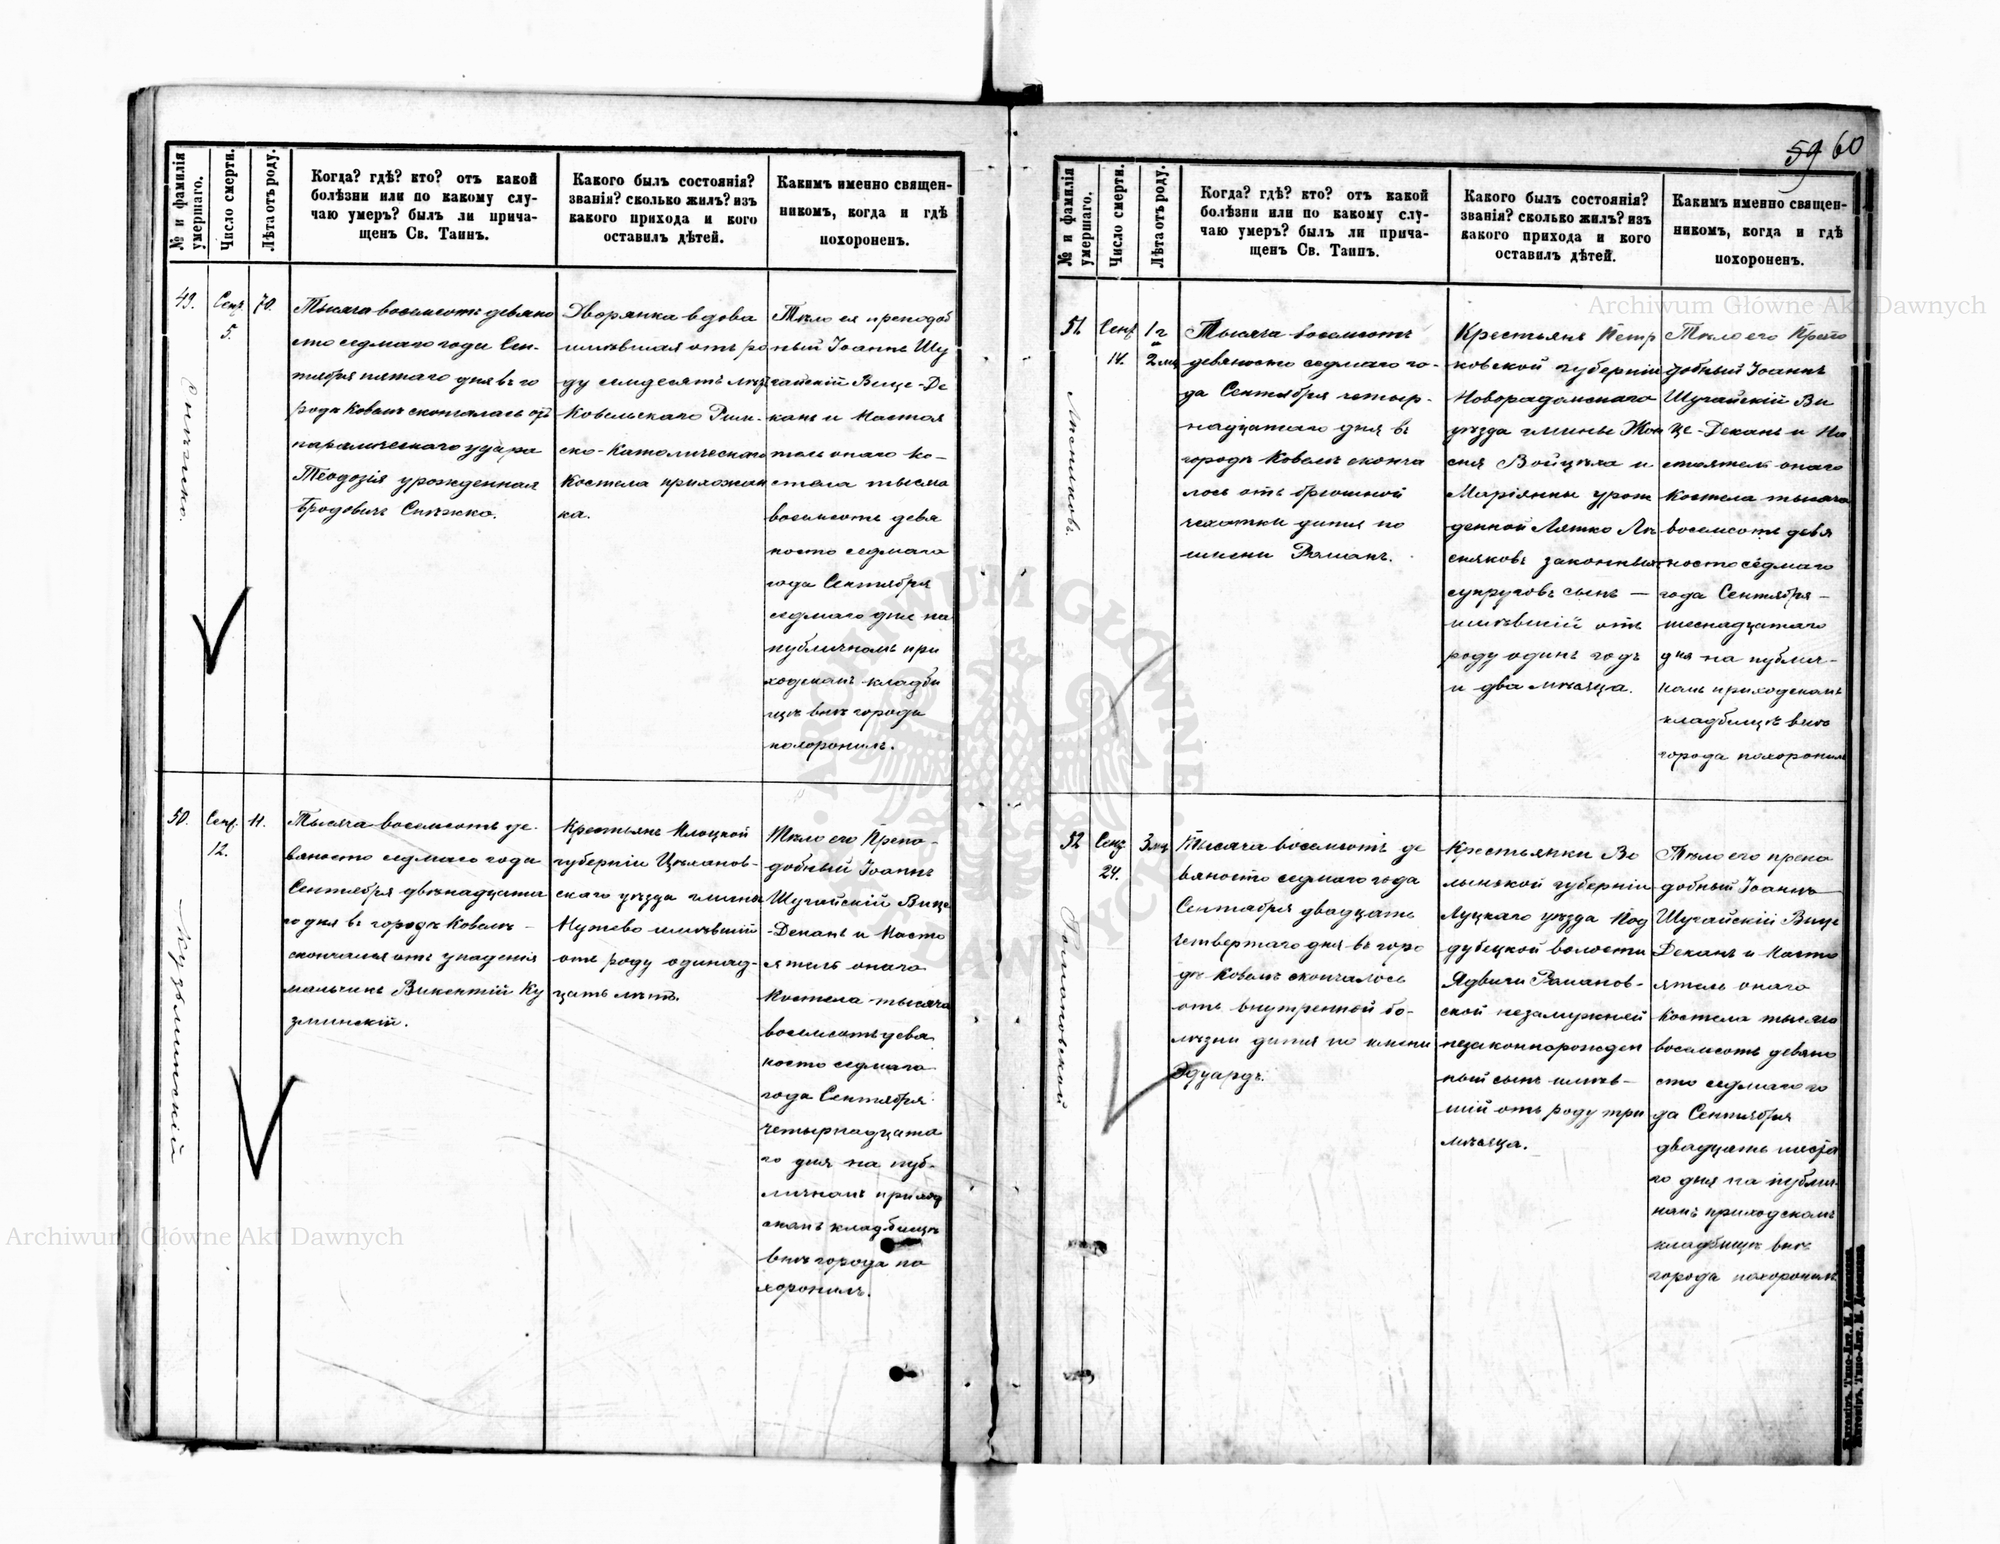 59 60
№ и фамилія умершаго.
Число смерти.
Лѣта отъ роду.
Когда? гдѣ? кто? отъ какой
болѣзни или по какому слу-
чаю умеръ? былъ ли прича-
щенъ Св. Таинъ.
Какого былъ состоянія?
званія? сколько жилъ? изъ
какого прихода и кого
оставилъ дѣтей.
Какимъ именно священ-
никомъ, когда и гдѣ
похороненъ.
49.
Сент.
5.
70.
Тысяча восемсотъ девяно
сто седмаго года Сен-
тября пятаго дня въ го
родѣ Ковелѣ скончалась отъ
паралическаго удара
Теодозія урожденная
Бродовичъ Снѣжко.
Дворянка вдова
имѣвшая отъ ро
ду семдесятъ лѣтъ
Ковельскаго Рим-
ско-Католическаго
Костела прихожан
ка.
Тѣло ея преподоб
ный Іоаннъ Шу
гайскій Вице-Де
канъ и Настоя
тель онаго Ко-
стела тысяча
восемсотъ девя
носто седмаго
года Сентября
седмаго дня на
публичномъ при
ходскомъ кладби
щѣ внѣ города
похоронилъ.
Снѣжко.
50.
Сент.
12.
11.
Тысяча восемсотъ де-
вяносто седмаго года
Сентября двѣнадцата
го дня въ городѣ Ковелѣ -
скончался отъ упаденія
мальчикъ Викентій Ку
зминскій.
Крестьянъ Плоцкой
губерніи Цѣханов-
скаго уѣзда гмины
Нужево имѣвшій
отъ роду одинад-
цать лѣтъ.
Тѣло его Препо-
добный Іоаннъ
Шугайскій Вице
-Деканъ и Насто
ятель онаго
Костела тысяча
восемсотъ девя
носто седмаго
года Сентября
четырнадцата
го дня на пуб-
личномъ приход
скомъ кладбищѣ
внѣ города по
хоронилъ.
Кузьминскій
№ и фамилія умершаго.
Число смерти.
Лѣта отъ роду.
Когда? гдѣ? кто? отъ какой
болѣзни или по какому слу-
чаю умеръ? былъ ли прича-
щенъ Св. Таинъ.
Какого былъ состоянія?
званія? сколько жилъ? изъ
какого прихода и кого
оставилъ дѣтей.
Какимъ именно священ-
никомъ, когда и гдѣ
похороненъ.
51.
Сент.
14.
1 г
2 мц
Тысяча восемсотъ
девяносто седмаго го-
да Сентября четыр-
надцатаго дня въ
городѣ Ковелѣ сконча
лось отъ брюшной
чахотки дитя по
имени Романъ.
Крестьянъ Петр
ковской губерніи
Новорадомскаго
уѣзда гмины
Войцѣха и
Маріянны урож
денной Лятко Лѣ
сняковъ законныхъ
супруговъ сынъ —
имѣвшій отъ
роду одинъ годъ
и два мѣсяца.
Тѣло его Препо
добный Іоаннъ
Шугайскій Ви
це-Деканъ и На
стоятель онаго
Костела тысяча
восемсотъ девя
носто седмаго
года Сентября —
шеснадцатаго
дня на публич-
номъ приходскомъ
кладбищѣ внѣ
города похоронилъ
52.
Сент.
24.
3 мц
Тысяча восемсотъ де
вяносто седмаго года
Сентября двадцать
четвертаго дня въ горо
дѣ Ковелѣ скончалось
отъ внутренной бо-
лѣзни дитя по имени
Эдуардъ.
Крестьянки Во
лынской губерніи
Луцкаго уѣзда Под
дубецкой волости
Ядвиги Романов-
ской незамужней
незаконнорожден
ный сынъ имѣв-
шій отъ роду три
мѣсяца.
Тѣло его препо
добный Іоаннъ
Шугайскій Вице
Деканъ и Насто
ятель онаго
Костела тысяча
восемсотъ девяно
сто седмаго го
да Сентября
двадцать шеста
го дня на публич
номъ приходскомъ
кладбищѣ внѣ
города похоронилъ.
Archiwum Główne Akt Dawnych
Archiwum Główne Akt Dawnych
ARCHIWUM GŁÓWNE
AKT DAWNYCH